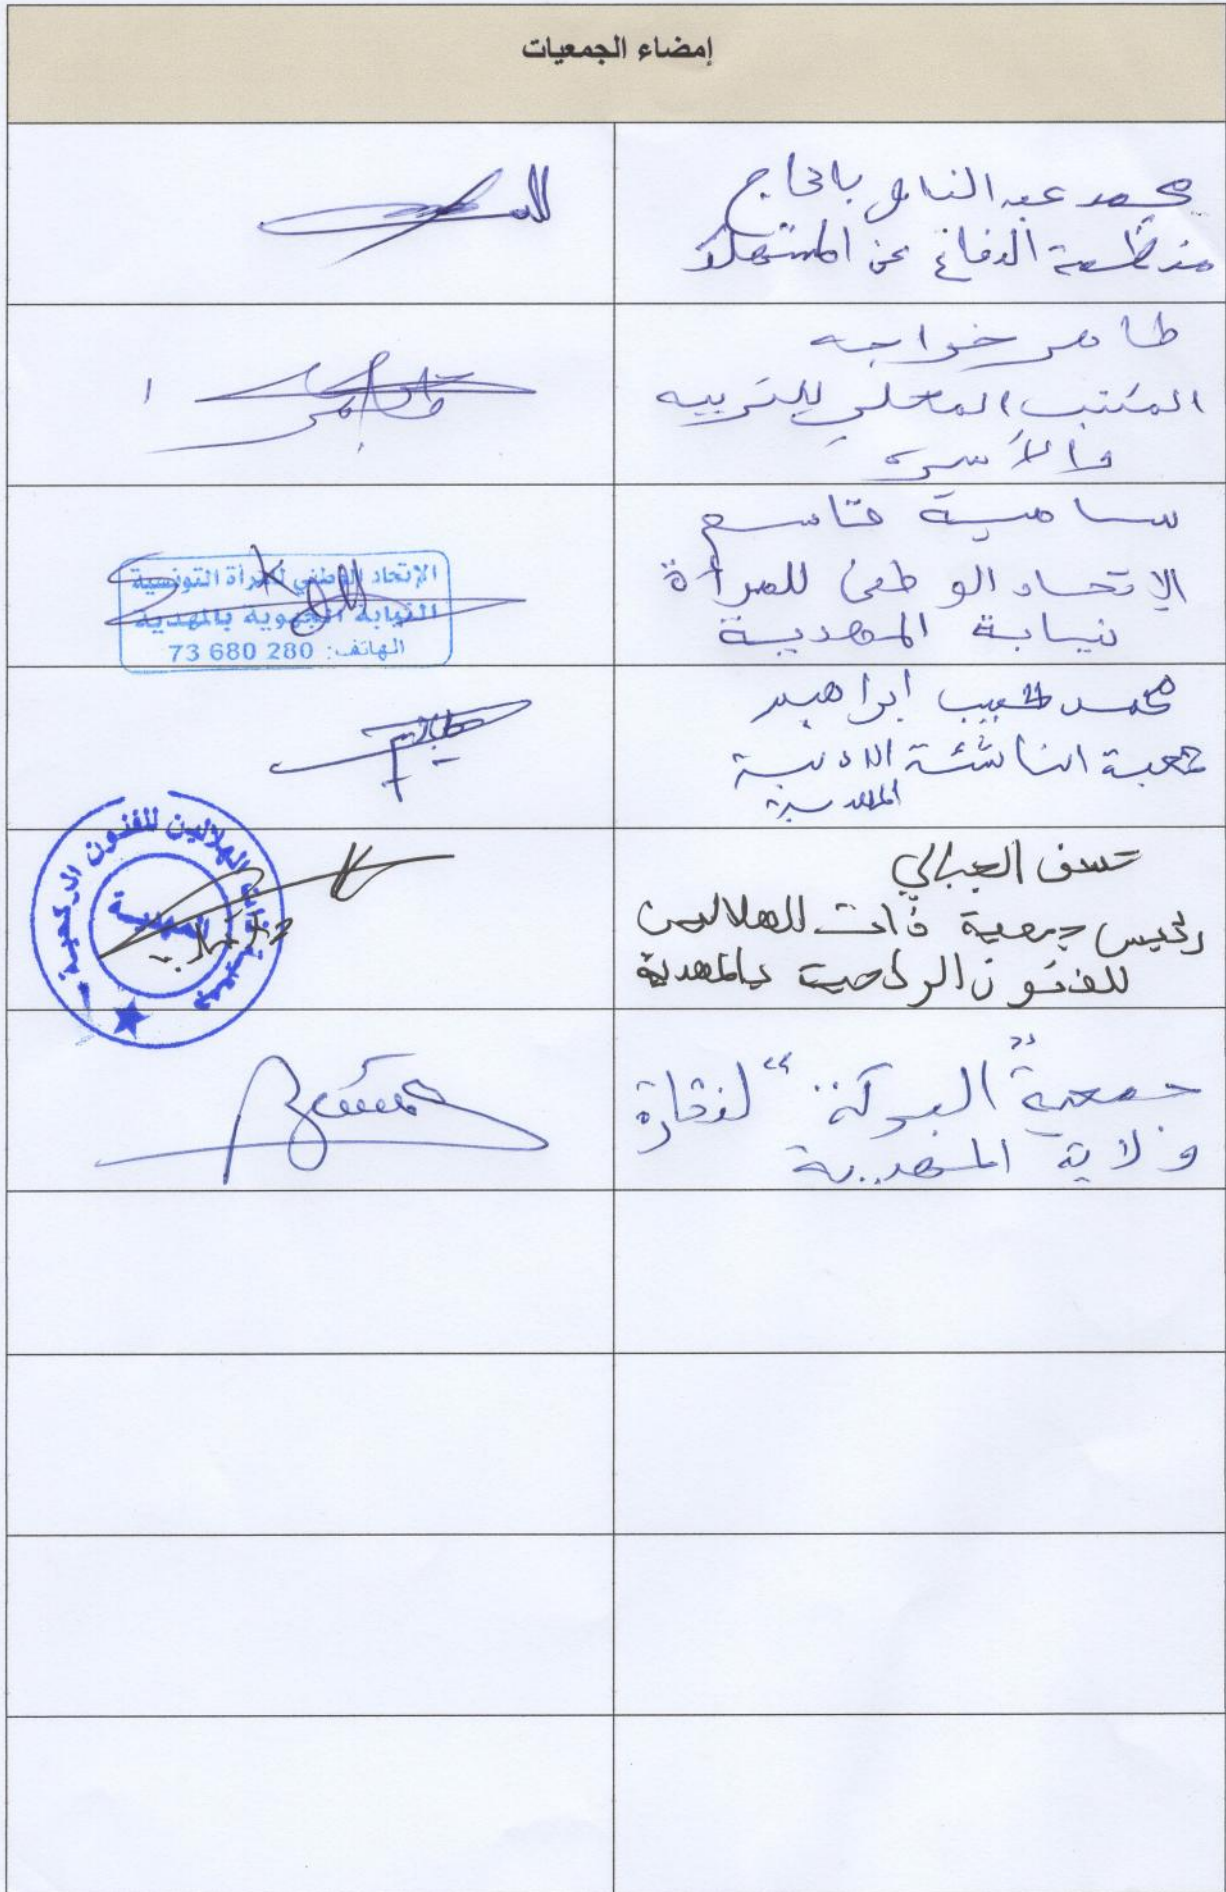 إمضاء الجمعيات
محمد عبد الناصر بالحاج
منظمة الدفاع عن المستهلك
طاهر خواجه
المكتب المحلي للتربيه
والأسره
سامية قاسم
الإتحاد الوطني للمرأة
نيابة المهدية
الإتحاد الوطني للمرأة التونسية
النيابة الجهوية بالمهدية
الهاتف: 280 680 73
محمد الحبيب ابراهيم
جمعية الناشئة الادبية
المهدية
الجبالي
رئيس جمعية ذات الهلالين
للفنون الركحية بالمهدية
جمعية ذات الهلالين للفنون الركحية
المهدية
جمعية "البركة"
ولاية المهدية